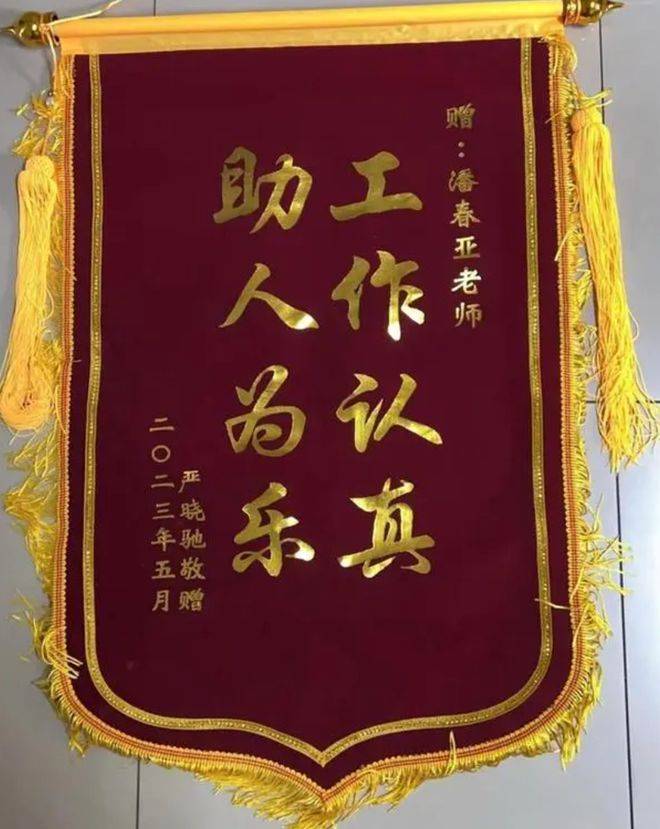 赠：潘春亚老师
工作认真
助人为乐
严晓驰敬赠
二〇二三年五月